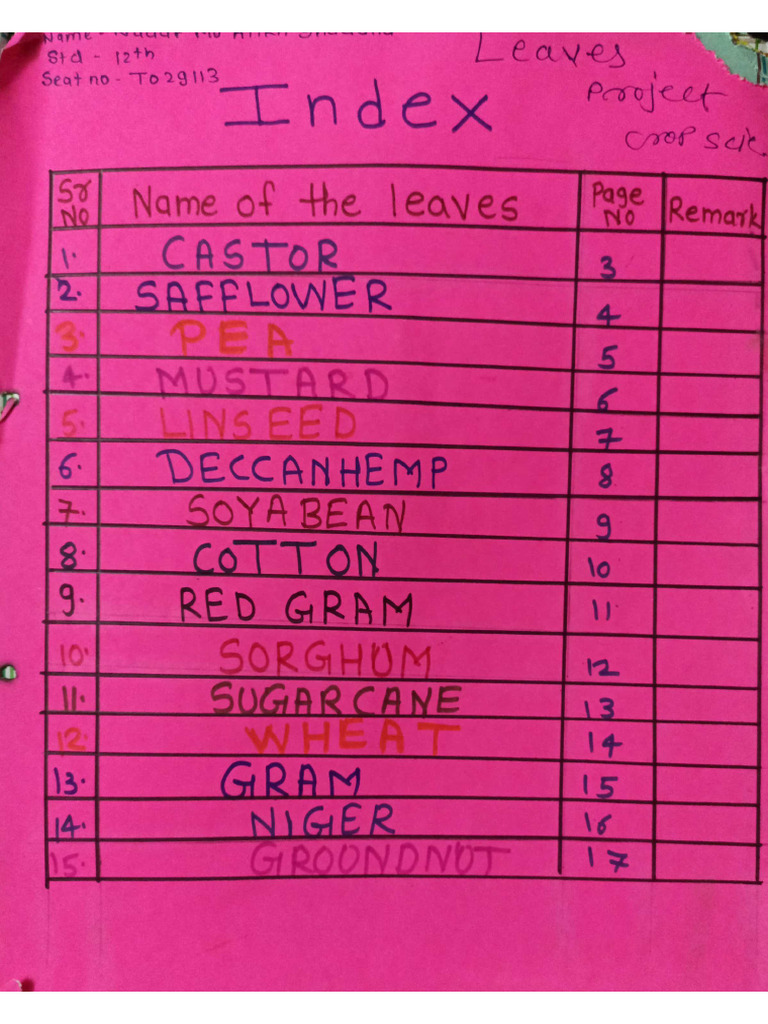 Name -
Std - 12th
Seat no - T029113
Leaves
Project
Crop Scie
Index
Sr No Name of the leaves Page No Remark
1. CASTOR 3
2. SAFFLOWER 4
3. PEA 5
4. MUSTARD 6
5. LINSEED 7
6. DECCANHEMP 8
7. SOYABEAN 9
8. COTTON 10
9. RED GRAM 11
10. SORGHUM 12
11. SUGARCANE 13
12. WHEAT 14
13. GRAM 15
14. NIGER 16
15. GROONDNUT 17